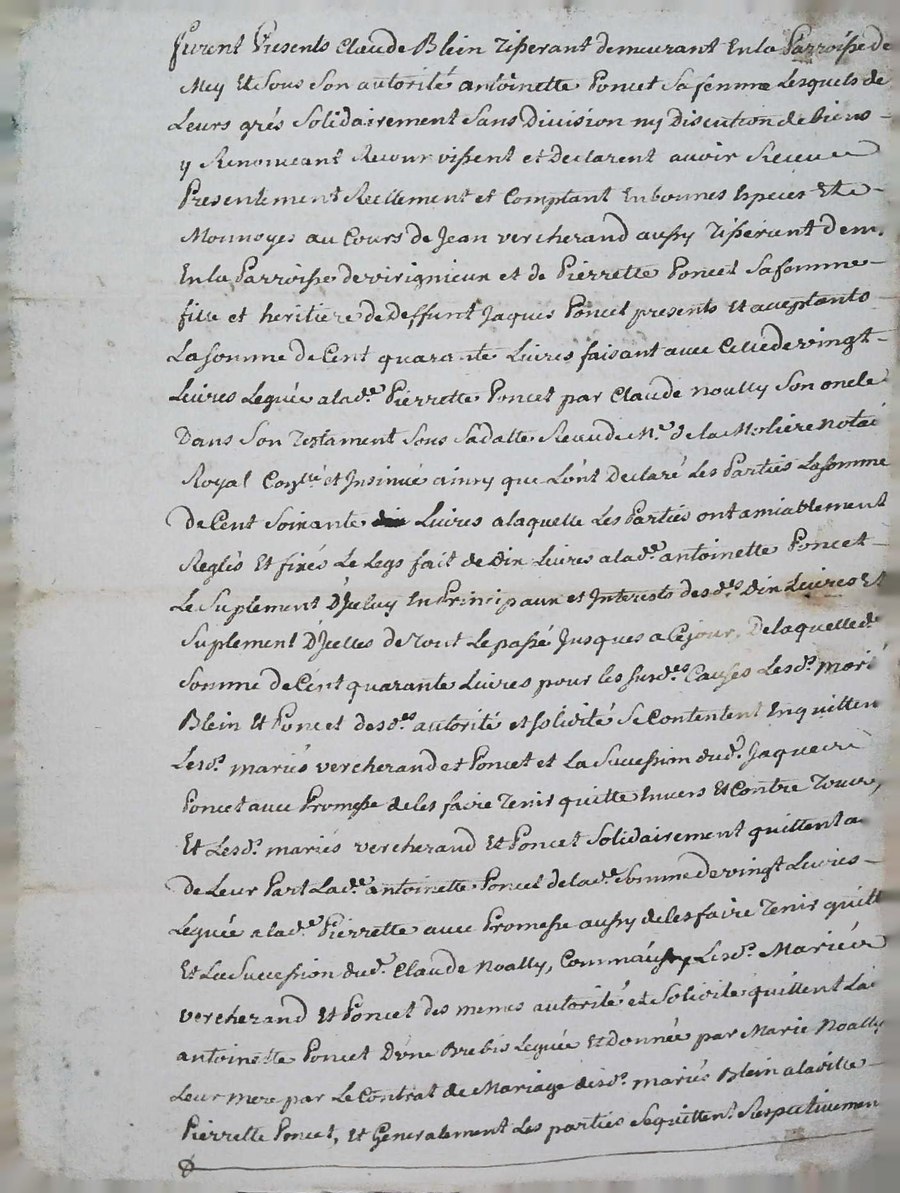 furent Presents Claude Blein Tisserant demeurant En la Parroisse de
Mey Et Sous Son autorité antoinette Poncet Sa femme Lesquels de
Leurs grés Solidairement Sans Division ny Discution de biens
y Renonceant Recour vissent et Declarent avoir Receu
Presentement Reellement et Comptant En bonnes Especes Et
Monnoyes au Cours de Jean vercherand aussy Tisserant dem.
En la Parroisse de virignieux et de Pierrette Poncet Sa femme
fille et heritiere de Deffunt Jaques Poncet presents Et aceptants
La somme de Cent quarante Livres faisant avec Celle de vingt
Livres Leguée a lad.e Pierrette Poncet par Claude noally Son oncle
Dans Son Testament Sous Sa datte Receu de M.e de la Moliere notai
Royal Con.llé et Insinué ainsy que L'ont Declaré Les Parties La somme
De Cent Soixante Livres a laquelle Les Parties ont amiablement
Reglés Et fixés Le Legs fait de Dix Livres a lad.e antoinette Poncet
Le Suplement D'Iceluy En Principaux et Interests desd.es Dix Livres Et
Suplement D'Icelles de tout Le passé Jusques a Ce jour, De laquelle d.e
Somme de Cent quarante Livres pour les susd.es Causes Lesd.s marié
Blein Et Poncet desd.es autorité et solidité Se Contentent En quitten
Lesd.s mariés vercherand et Poncet et La Succession dud.t Jaques
Poncet avec Promesse de les faire Tenir quitte Envers Et Contre Tous,
Et Lesd.s mariés vercherand Et Poncet Solidairement quittent a
De Leur Part Lad.e antoinette Poncet de lad.e Somme de vingt Livres
Leguée a lad.e Pierrette avec Promesse aussy de les faire Tenir quitt
Et La Succession dud.t Claude Noally, Comme aussy Lesd.s Mariés
vercherand Et Poncet des memes autorité et Solidité quittent La
antoinette Poncet D'une Brebis Leguée Et donnée par Marie Noally
Leur mere par Le Contrat de Mariage desd.s mariés Blein a la ditte
Pierrette Poncet, et Generalement Les parties Se quittent Respectivemen